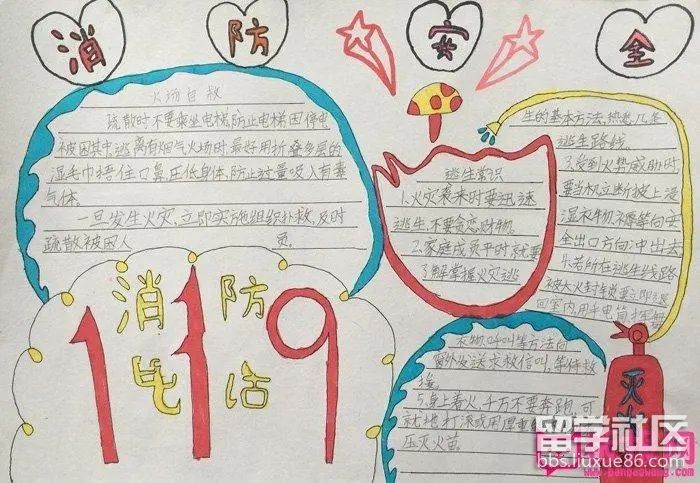 消 防 安 全
火场自救
疏散时不要乘坐电梯,防止电梯因停电
被困其中,逃离有烟气火场时最好用折叠多层的
湿毛巾捂住口鼻压低身体,防止过量吸入有毒
气体
一旦发生火灾,立即实施组织扑救,及时
疏散被困人 员.
消防
电话
119
逃生常识
1.火灾袭来时要迅速
逃生,不要贪恋财物.
2.家庭成员平时就要
了解掌握火灾逃
生的基本方法,熟悉几条
逃生路线.
3.受到火势威胁时,
要当机立断披上浸
湿衣物、 等向安
全出口方向冲出去
4.若所在逃生线路
被大火封锁,要立即退
回室内,用手电筒挥舞
衣物、呼叫等方法向
窗外发送求救信叫,等待救
援.
5.身上着火,千万不要奔跑,可
就地打滚或用厚重
压灭火苗.
灭火
留学社区
bbs.liuxue86.com
网
www.benpaowang.com